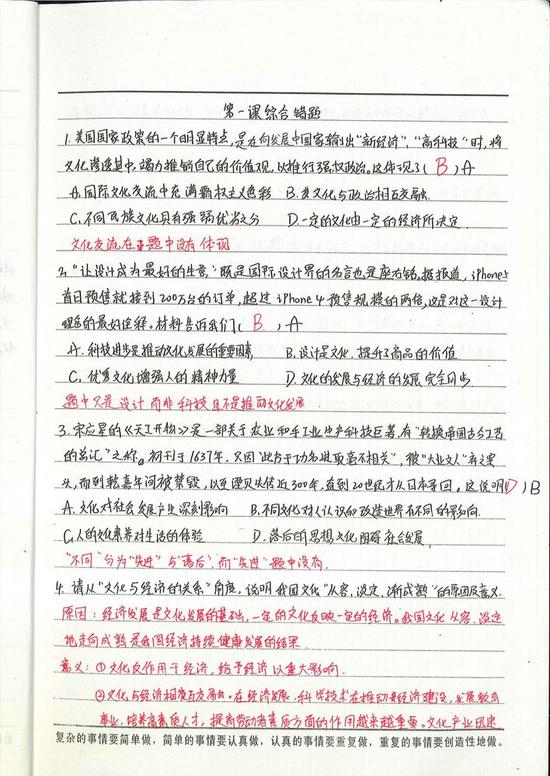 第一课综合错题
1. 美国国家政策的一个明显特点,是在向发展中国家输出"新经济","高科技"时,将
文化渗透其中,竭力推销自己的价值观,以推行强权政治。这体现了( B )A
A. 国际文化交流中充满霸权主义色彩 B. 文化与政治相互交融
C. 不同民族文化具有强弱优劣之分 D. 一定的文化由一定的经济所决定
文化交流在正题中没有体现
2. "让设计成为最好的生意"既是国际设计界的名言也是座右铭。据报道,iPhone5
首日预售就接到200万台的订单,超过iPhone4预售规模的两倍,这是对这一设计
观念的最好诠释。材料告诉我们( B )A
A. 科技进步是推动文化发展的重要因素 B. 设计是文化,提升了商品的价值
C. 优秀文化增强人的精神力量 D. 文化的发展与经济的发展完全同步
题中只是设计而非科技且不是推动文化发展
3. 宋应星的《天工开物》是一部关于农业和手工业生产科技巨著,有"转换帝国古今工艺
的总汇"之称。初刊于1637年,又因"此书于功名进取毫不相关",被"大业文人"弃之案
头,而到乾嘉年间被禁毁,以至湮贝失传近300年,直到20世纪才从日本寻回。这说明( D )B
A. 文化对社会发展产生深刻影响 B. 不同文化对人认识和改造世界有不同的影响
C. 人的文化素养对生活的体验 D. 落后的思想文化阻碍社会发展
"不同"分为"先进"与"落后",而"先进"题中没有
4. 请从"文化与经济的关系"角度,说明我国文化"从容、淡定、渐成熟"的原因及意义
原因:经济发展是文化发展的基础,一定的文化反映一定的经济。我国文化从容、淡定
地走向成熟是我国经济持续健康发展的结果
意义:①文化反作用于经济,给予经济以重大影响
②文化与经济相互交融。在经济发展,科学技术在推动经济建设,发展教育
事业、培养高素质人才,提高劳动者素质方面的作用越来越重要。文化产业迅速
复杂的事情要简单做,简单的事情要认真做,认真的事情要重复做,重复的事情要创造性地做。